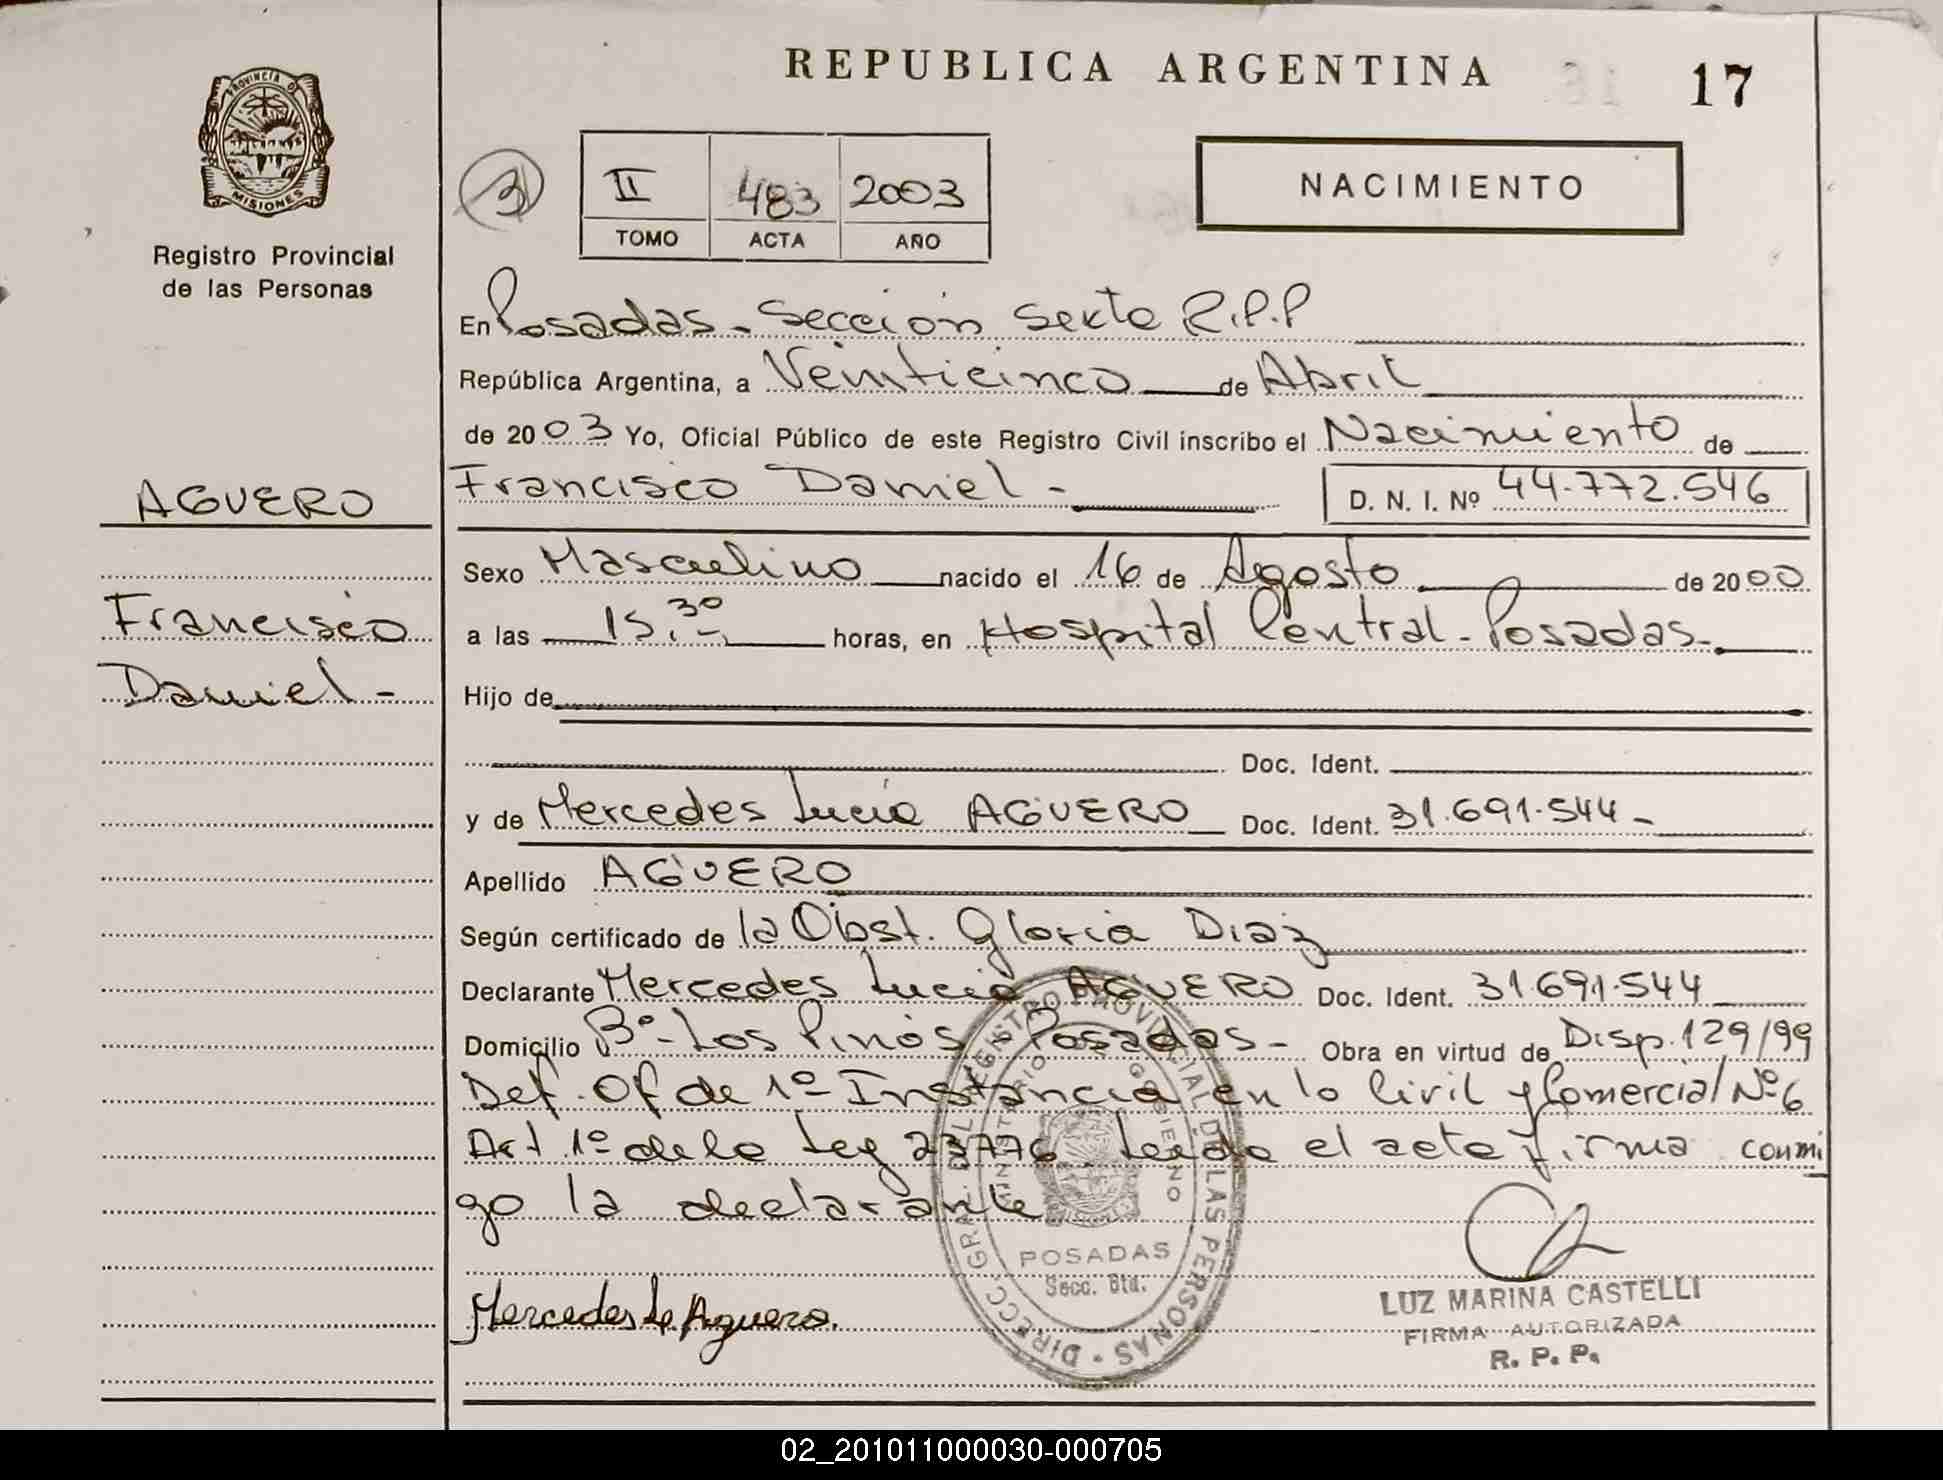 REPUBLICA ARGENTINA
17
PROVINCIA DE MISIONES
Registro Provincial
de las Personas
3
II 483 2003
TOMO ACTA AÑO
NACIMIENTO
En Posadas - Sección Sexta R.P.P
República Argentina, a Veinticinco de Abril
de 2003 Yo, Oficial Público de este Registro Civil inscribo el Nacimiento de
Francisco Daniel - D. N. I. Nº 44.772.546
AGUERO
Francisco
Daniel -
Sexo Masculino nacido el 16 de Agosto de 2000
a las 15.30 horas, en Hospital Central - Posadas -
Hijo de
Doc. Ident.
y de Mercedes Lucía AGUERO Doc. Ident. 31.691.544 -
Apellido AGÜERO
Según certificado de la Obst. Gloria Diaz
Declarante Mercedes Lucia AGUERO Doc. Ident. 31691.544
Domicilio Bº Los Pinos Posadas - Obra en virtud de Disp. 129/99
Def. Of de 1º Instancia en lo Civil y Comercial Nº 6
Art 1º de la Ley 23776. Leída el acta firma conmi
go la declarante
Mercedes L. Aguero.
DIRECC. GRAL. DEL REGISTRO PROVINCIAL DE LAS PERSONAS
MINISTERIO DE GOBIERNO
POSADAS
Secc. 6ta.
LUZ MARINA CASTELLI
FIRMA AUTORIZADA
R. P. P.
02_201011000030-000705